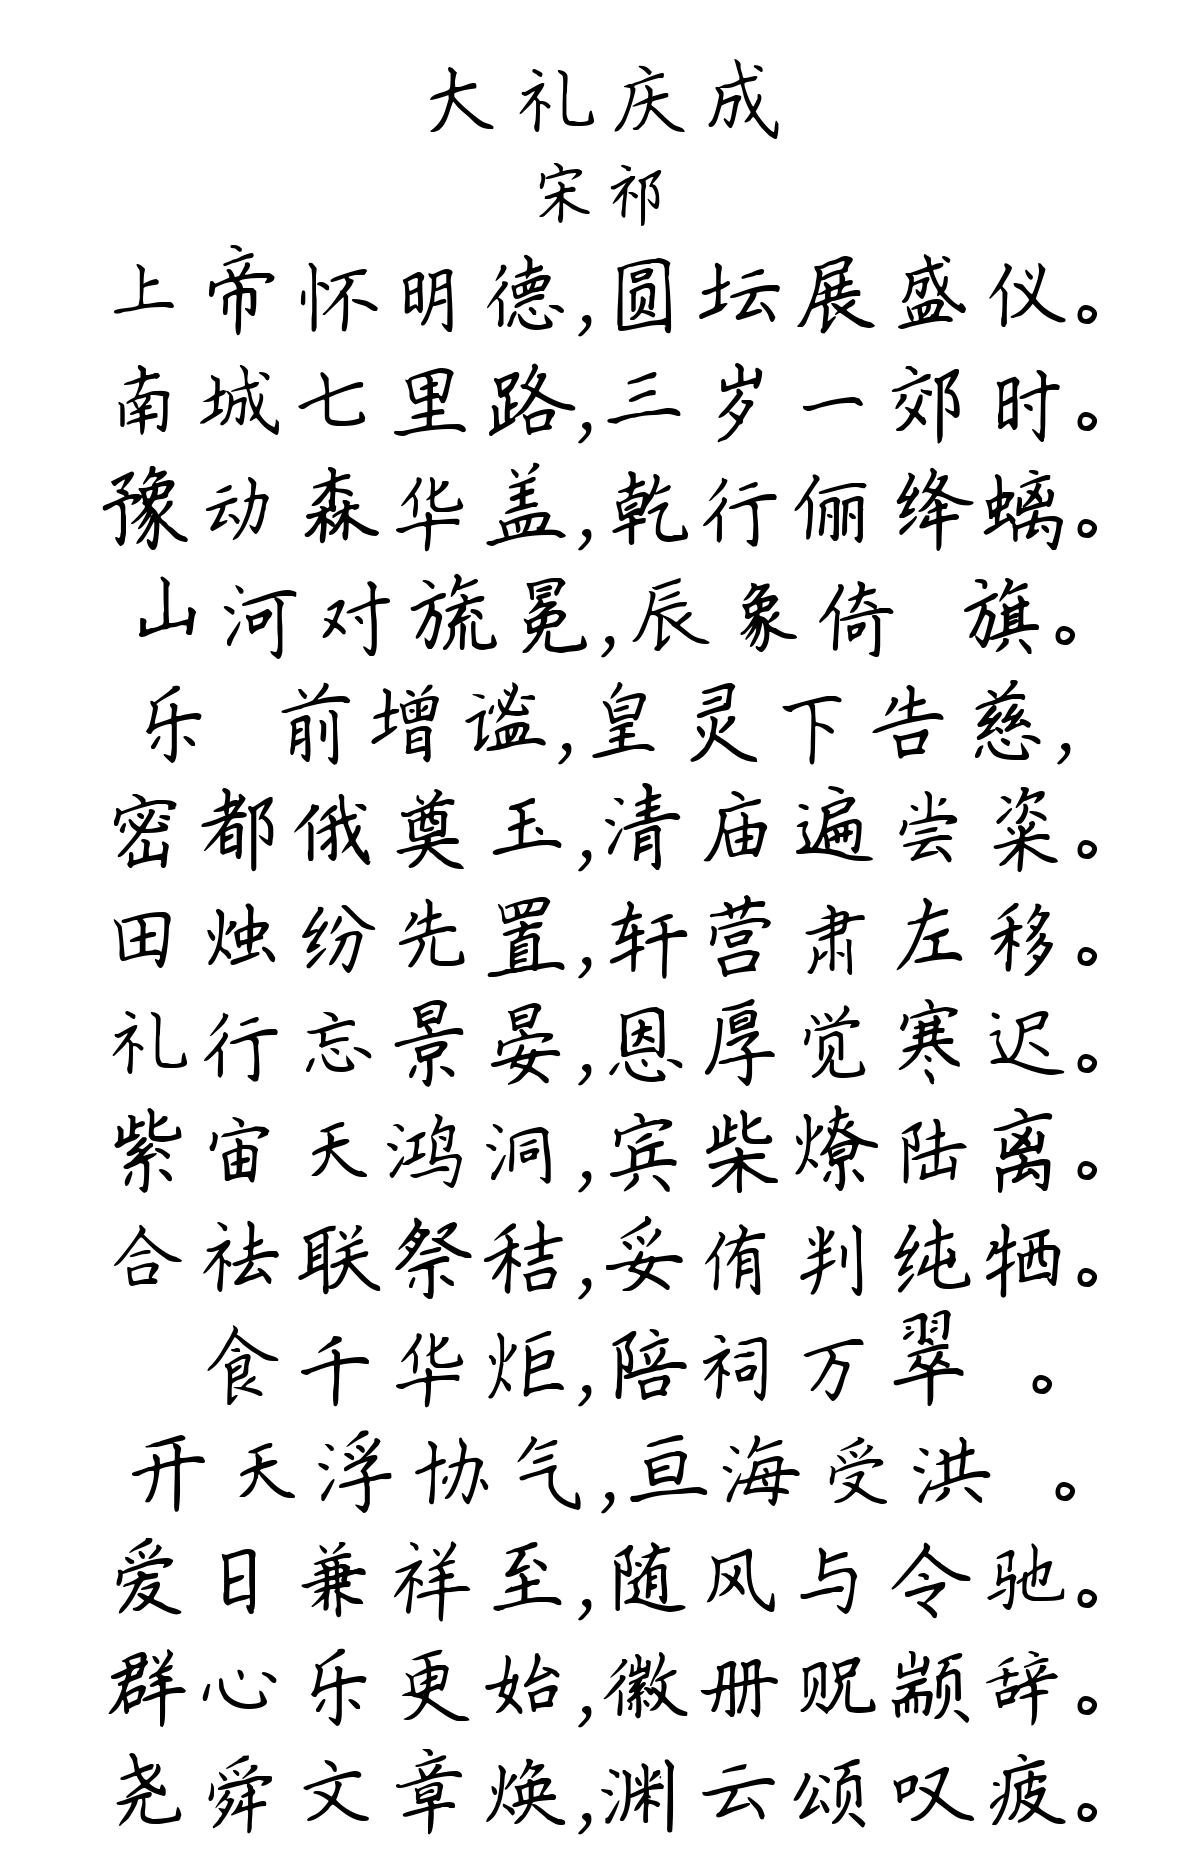 大礼庆成
宋祁
上帝怀明德,圆坛展盛仪。
南城七里路,三岁一郊时。
豫动森华盖,乾行俪绛螭。
山河对旒冕,辰象倚 旗。
乐 前增谧,皇灵下告慈,
密都俄奠玉,清庙遍尝粢。
田烛纷先置,轩营肃左移。
礼行忘景晏,恩厚觉寒迟。
紫宙天鸿洞,宾柴燎陆离。
合祛联祭秸,妥侑判纯牺。
食千华炬,陪祠万翠 。
开天浮协气,亘海受洪 。
爱日兼祥至,随风与令驰。
群心乐更始,徽册贶颛辞。
尧舜文章焕,渊云颂叹疲。